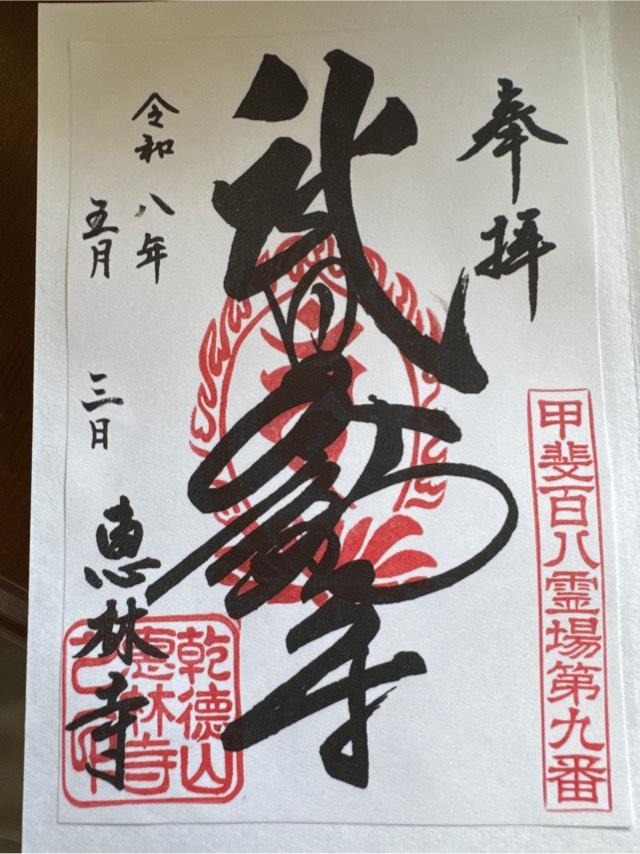 奉拝
甲斐百八霊場第九番
武田不動尊
令和八年
五月三日
恵林寺
乾徳山
恵林寺
之印